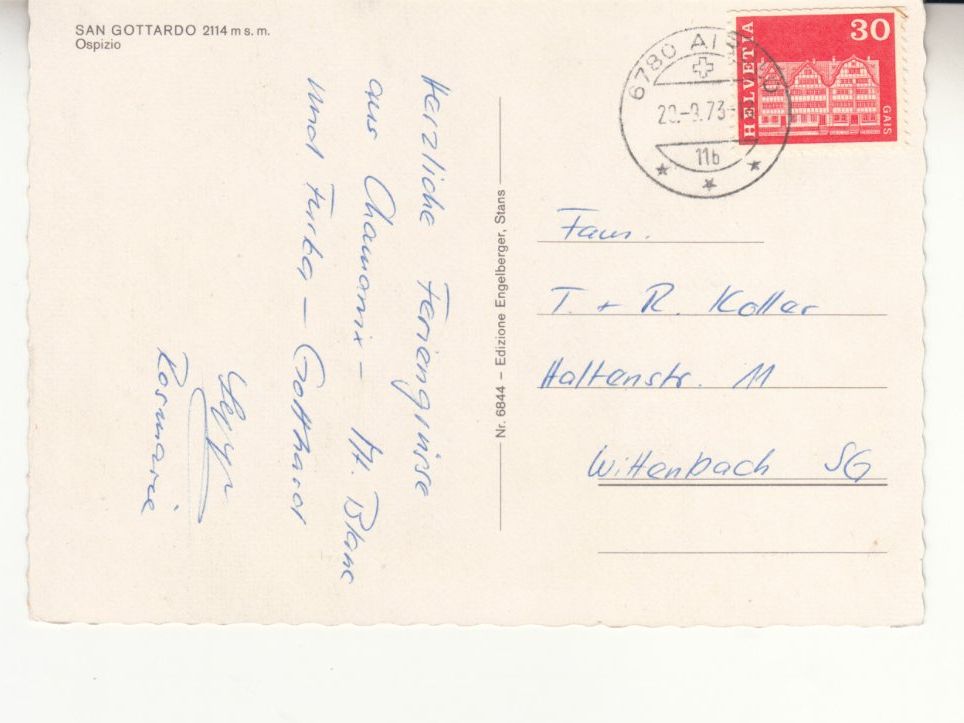 SAN GOTTARDO 2114 m s. m.
Ospizio
Herzliche Feriengrüsse
aus Chamonix – Mt. Blanc
und Furka – Gotthard
Rosmarie
Nr. 6844 – Edizione Engelberger, Stans
HELVETIA
30
GAIS
6780 AIROLO
73
11b
Fam.
T. + R. Koller
Haltenstr. 11
Wittenbach SG